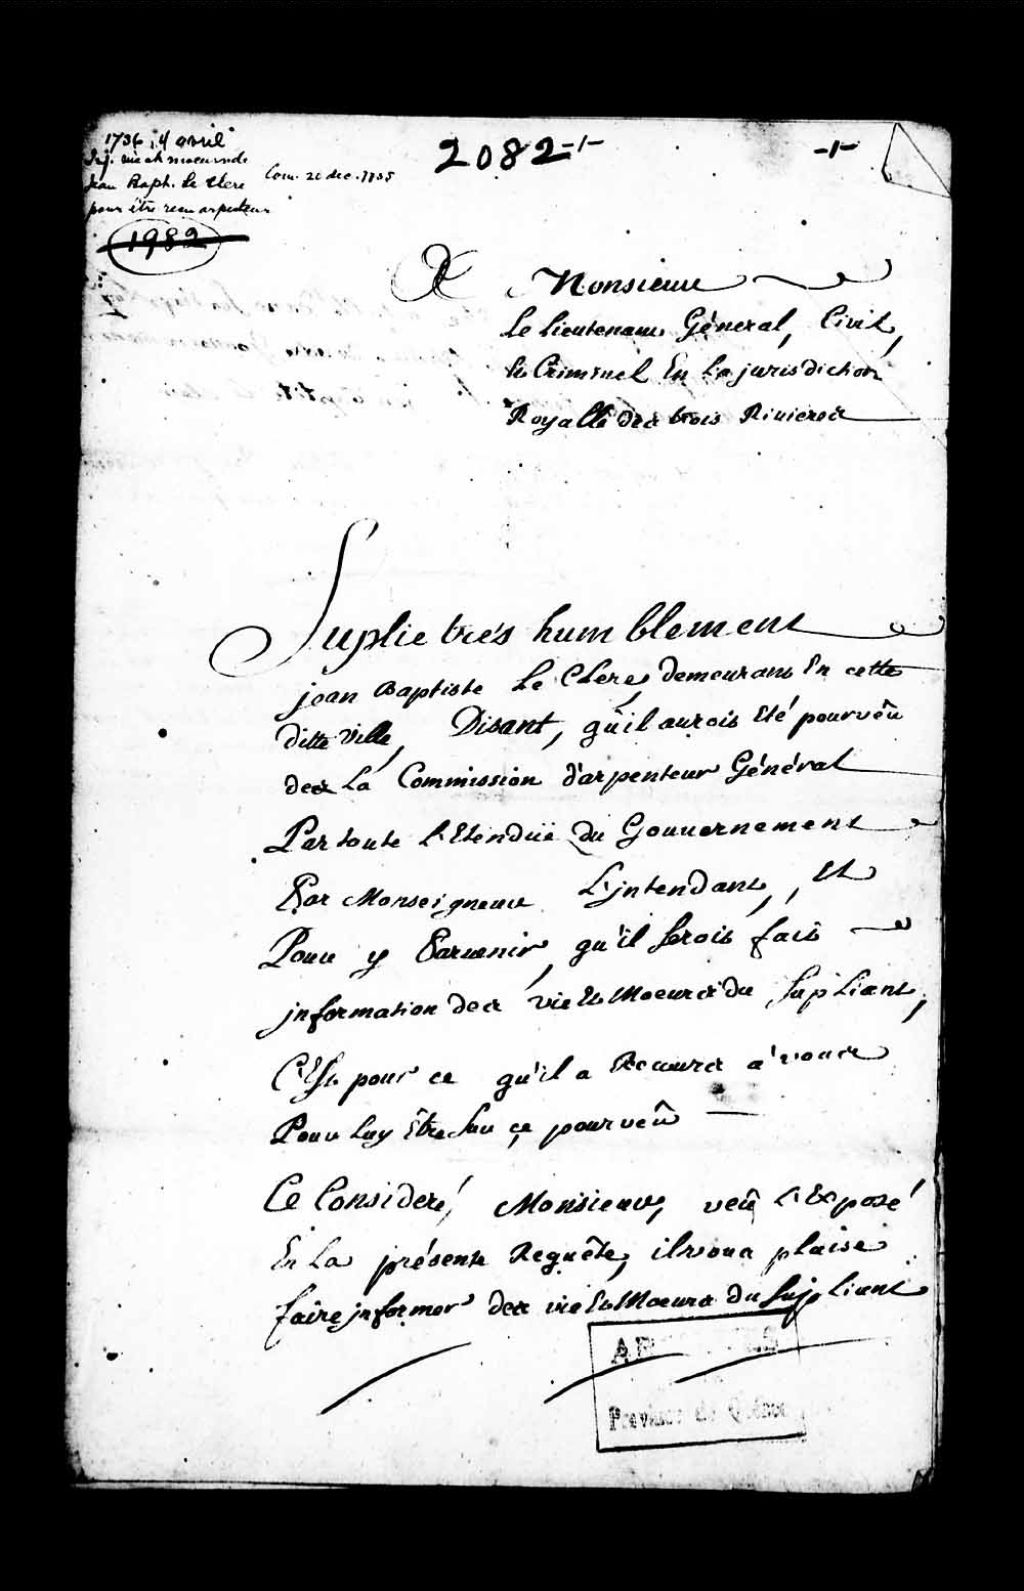 1736, 4 avril
Inf. vie et moeurs de
Jean Bapt. Le Clerc
pour être recu arpenteur
Com. 20 dec. 1735
1982
2082 -1-
-1-
A Monsieur
Le Lieutenant Géneral, Civil,
et Criminel En La jurisdiction
Royalle des trois Rivieres
Suplie trés humblement
jean Baptiste Le Clerc, demeurant En cette
ditte Ville, Disant, qu'il aurois Eté pourvêu
des La Commission d'arpenteur Général
Par toute l'Etenduë du Gouvernement
Par Monseigneur L'jntendant, Et
Pour y Parvenir, qu'il serois fait
jnformation des vie Et Moeurs du Supliant,
C'Est pour ce qu'il a Recours a vous
Pour Luy Être sur ce pourveû
Ce Consideré, Monsieur, veû L'Exposé
En La présente Requête, il vous plaise
faire jnformer des vie Et Moeurs du Supliant
Province de Québec